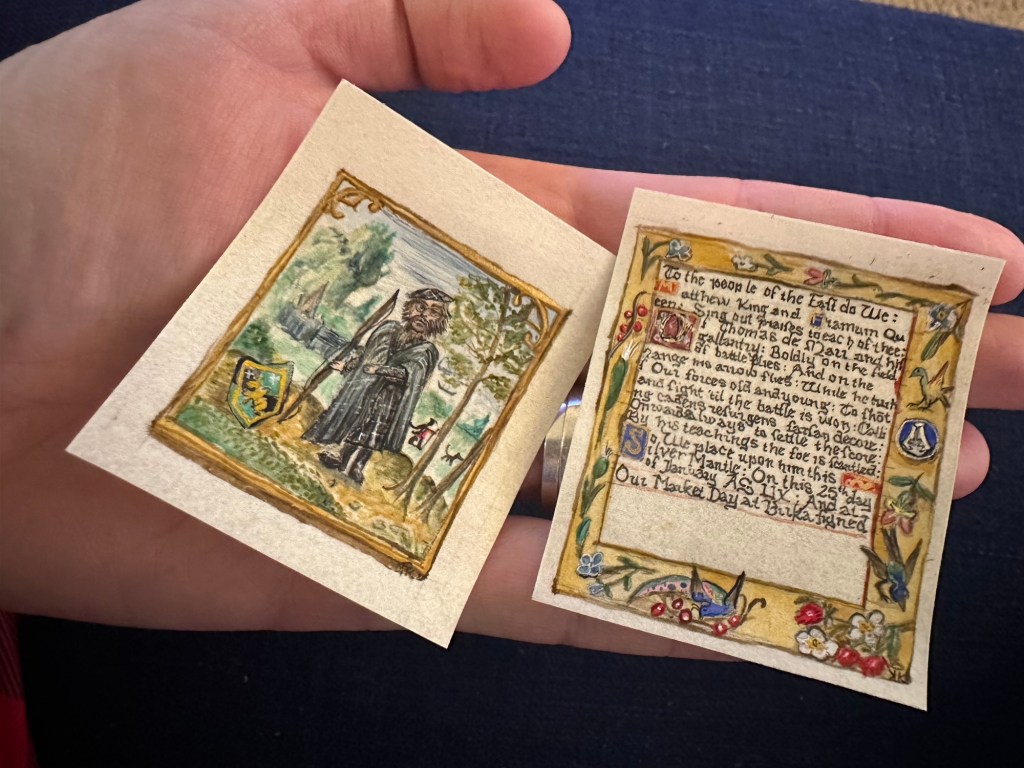 To the people of the East do We:
Matthew King and Bramum Qu
een: Sing out praises to each of thee:
Of Thomas de Marr and his
gallantry: Boldly on the field
of battle flies: And on the
range his arrow flies: While he tush
t Our forces old and young: To shot
and fight 'til the battle is won: Calli
ng cadens resurgens fortan decore:
Onwards always to settle the score:
By his teachings the foe is scantled:
So, We place upon him this
Silver Mantle: On this 25th day
of January AS LIV: And at
Our Market Day at Birka signed